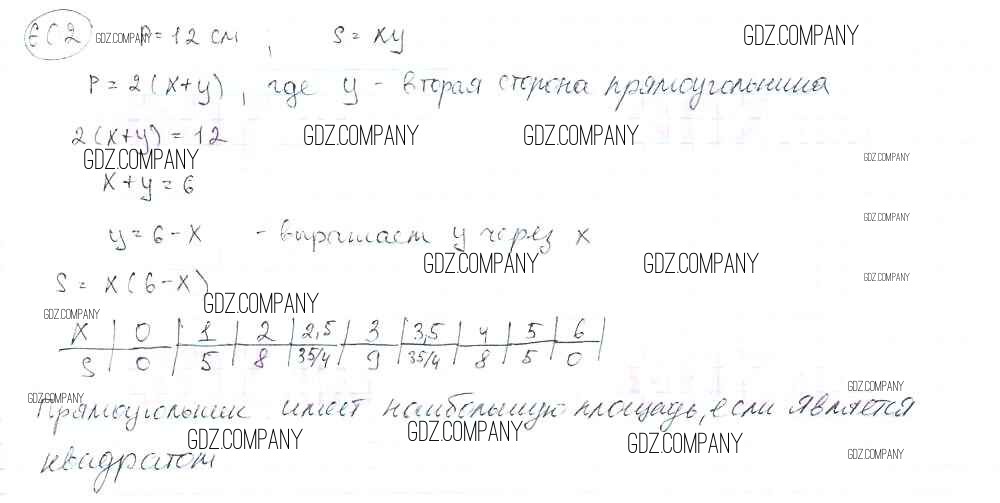 652 GDZ.COMPANY P=12 см ; S = xy GDZ.COMPANY
P=2(x+y), где y - вторая сторона прямоугольника
2(x+y)=12 GDZ.COMPANY GDZ.COMPANY
GDZ.COMPANY GDZ.COMPANY
x+y=6
GDZ.COMPANY
y=6-x - выражаем y через x
GDZ.COMPANY GDZ.COMPANY
S = x(6-x) GDZ.COMPANY
GDZ.COMPANY
GDZ.COMPANY
x | 0 | 1 | 2 | 2,5 | 3 | 3,5 | 4 | 5 | 6
S | 0 | 5 | 8 | 35/4 | 9 | 35/4 | 8 | 5 | 0
GDZ.COMPANY GDZ.COMPANY
Прямоугольник имеет наибольшую площадь, если является
GDZ.COMPANY GDZ.COMPANY GDZ.COMPANY
квадратом GDZ.COMPANY